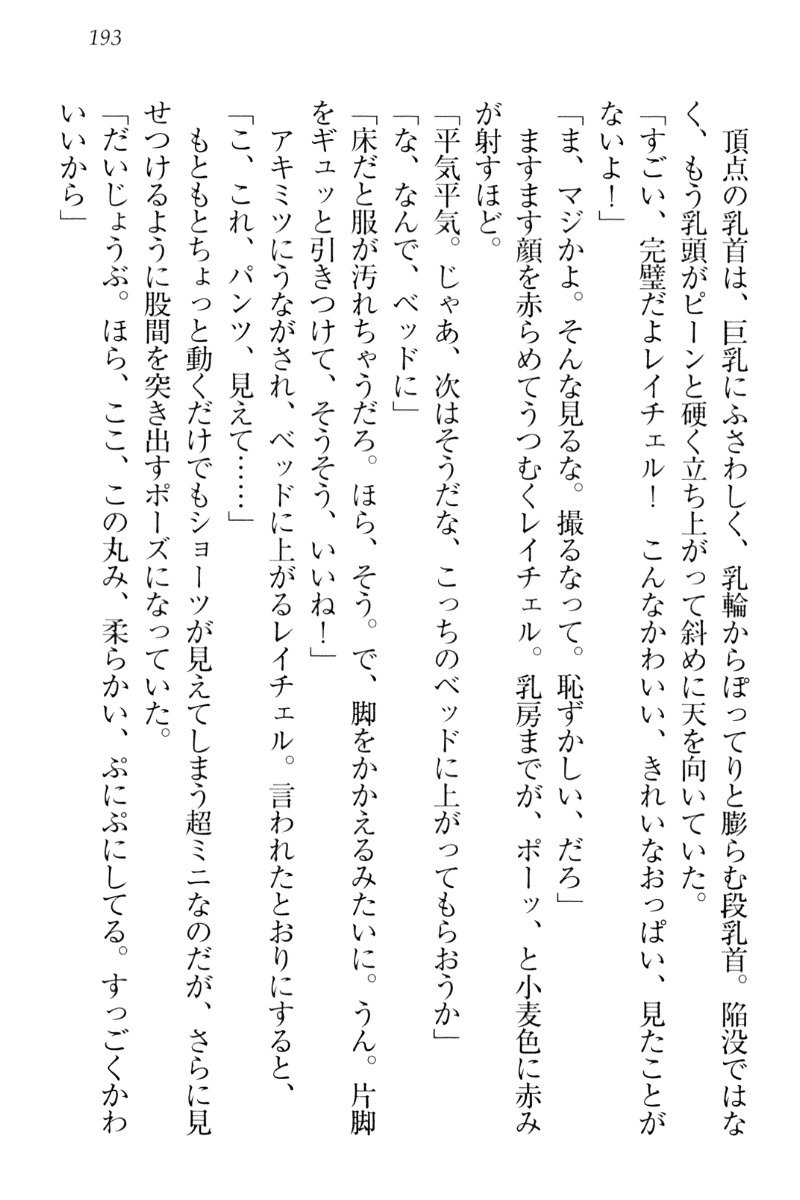 193
頂点の乳首は、巨乳にふさわしく、乳輪からぽってりと膨らむ段乳首。陥没ではな
く、もう乳頭がピーンと硬く立ち上がって斜めに天を向いていた。
「すごい、完璧だよレイチェル！　こんなかわいい、きれいなおっぱい、見たことが
ないよ！」
「ま、マジかよ。そんな見るな。撮るなって。恥ずかしい、だろ」
ますます顔を赤らめてうつむくレイチェル。乳房までが、ポーッ、と小麦色に赤み
が射すほど。
「平気平気。じゃあ、次はそうだな、こっちのベッドに上がってもらおうか」
「な、なんで、ベッドに」
「床だと服が汚れちゃうだろ。ほら、そう。で、脚をかかえるみたいに。うん。片脚
をギュッと引きつけて、そうそう、いいね！」
アキミツにうながされ、ベッドに上がるレイチェル。言われたとおりにすると、
「こ、これ、パンツ、見えて……」
もともとちょっと動くだけでもショーツが見えてしまう超ミニなのだが、さらに見
せつけるように股間を突き出すポーズになっていた。
「だいじょうぶ。ほら、ここ、この丸み、柔らかい、ぷにぷにしてる。すっごくかわ
いいから」